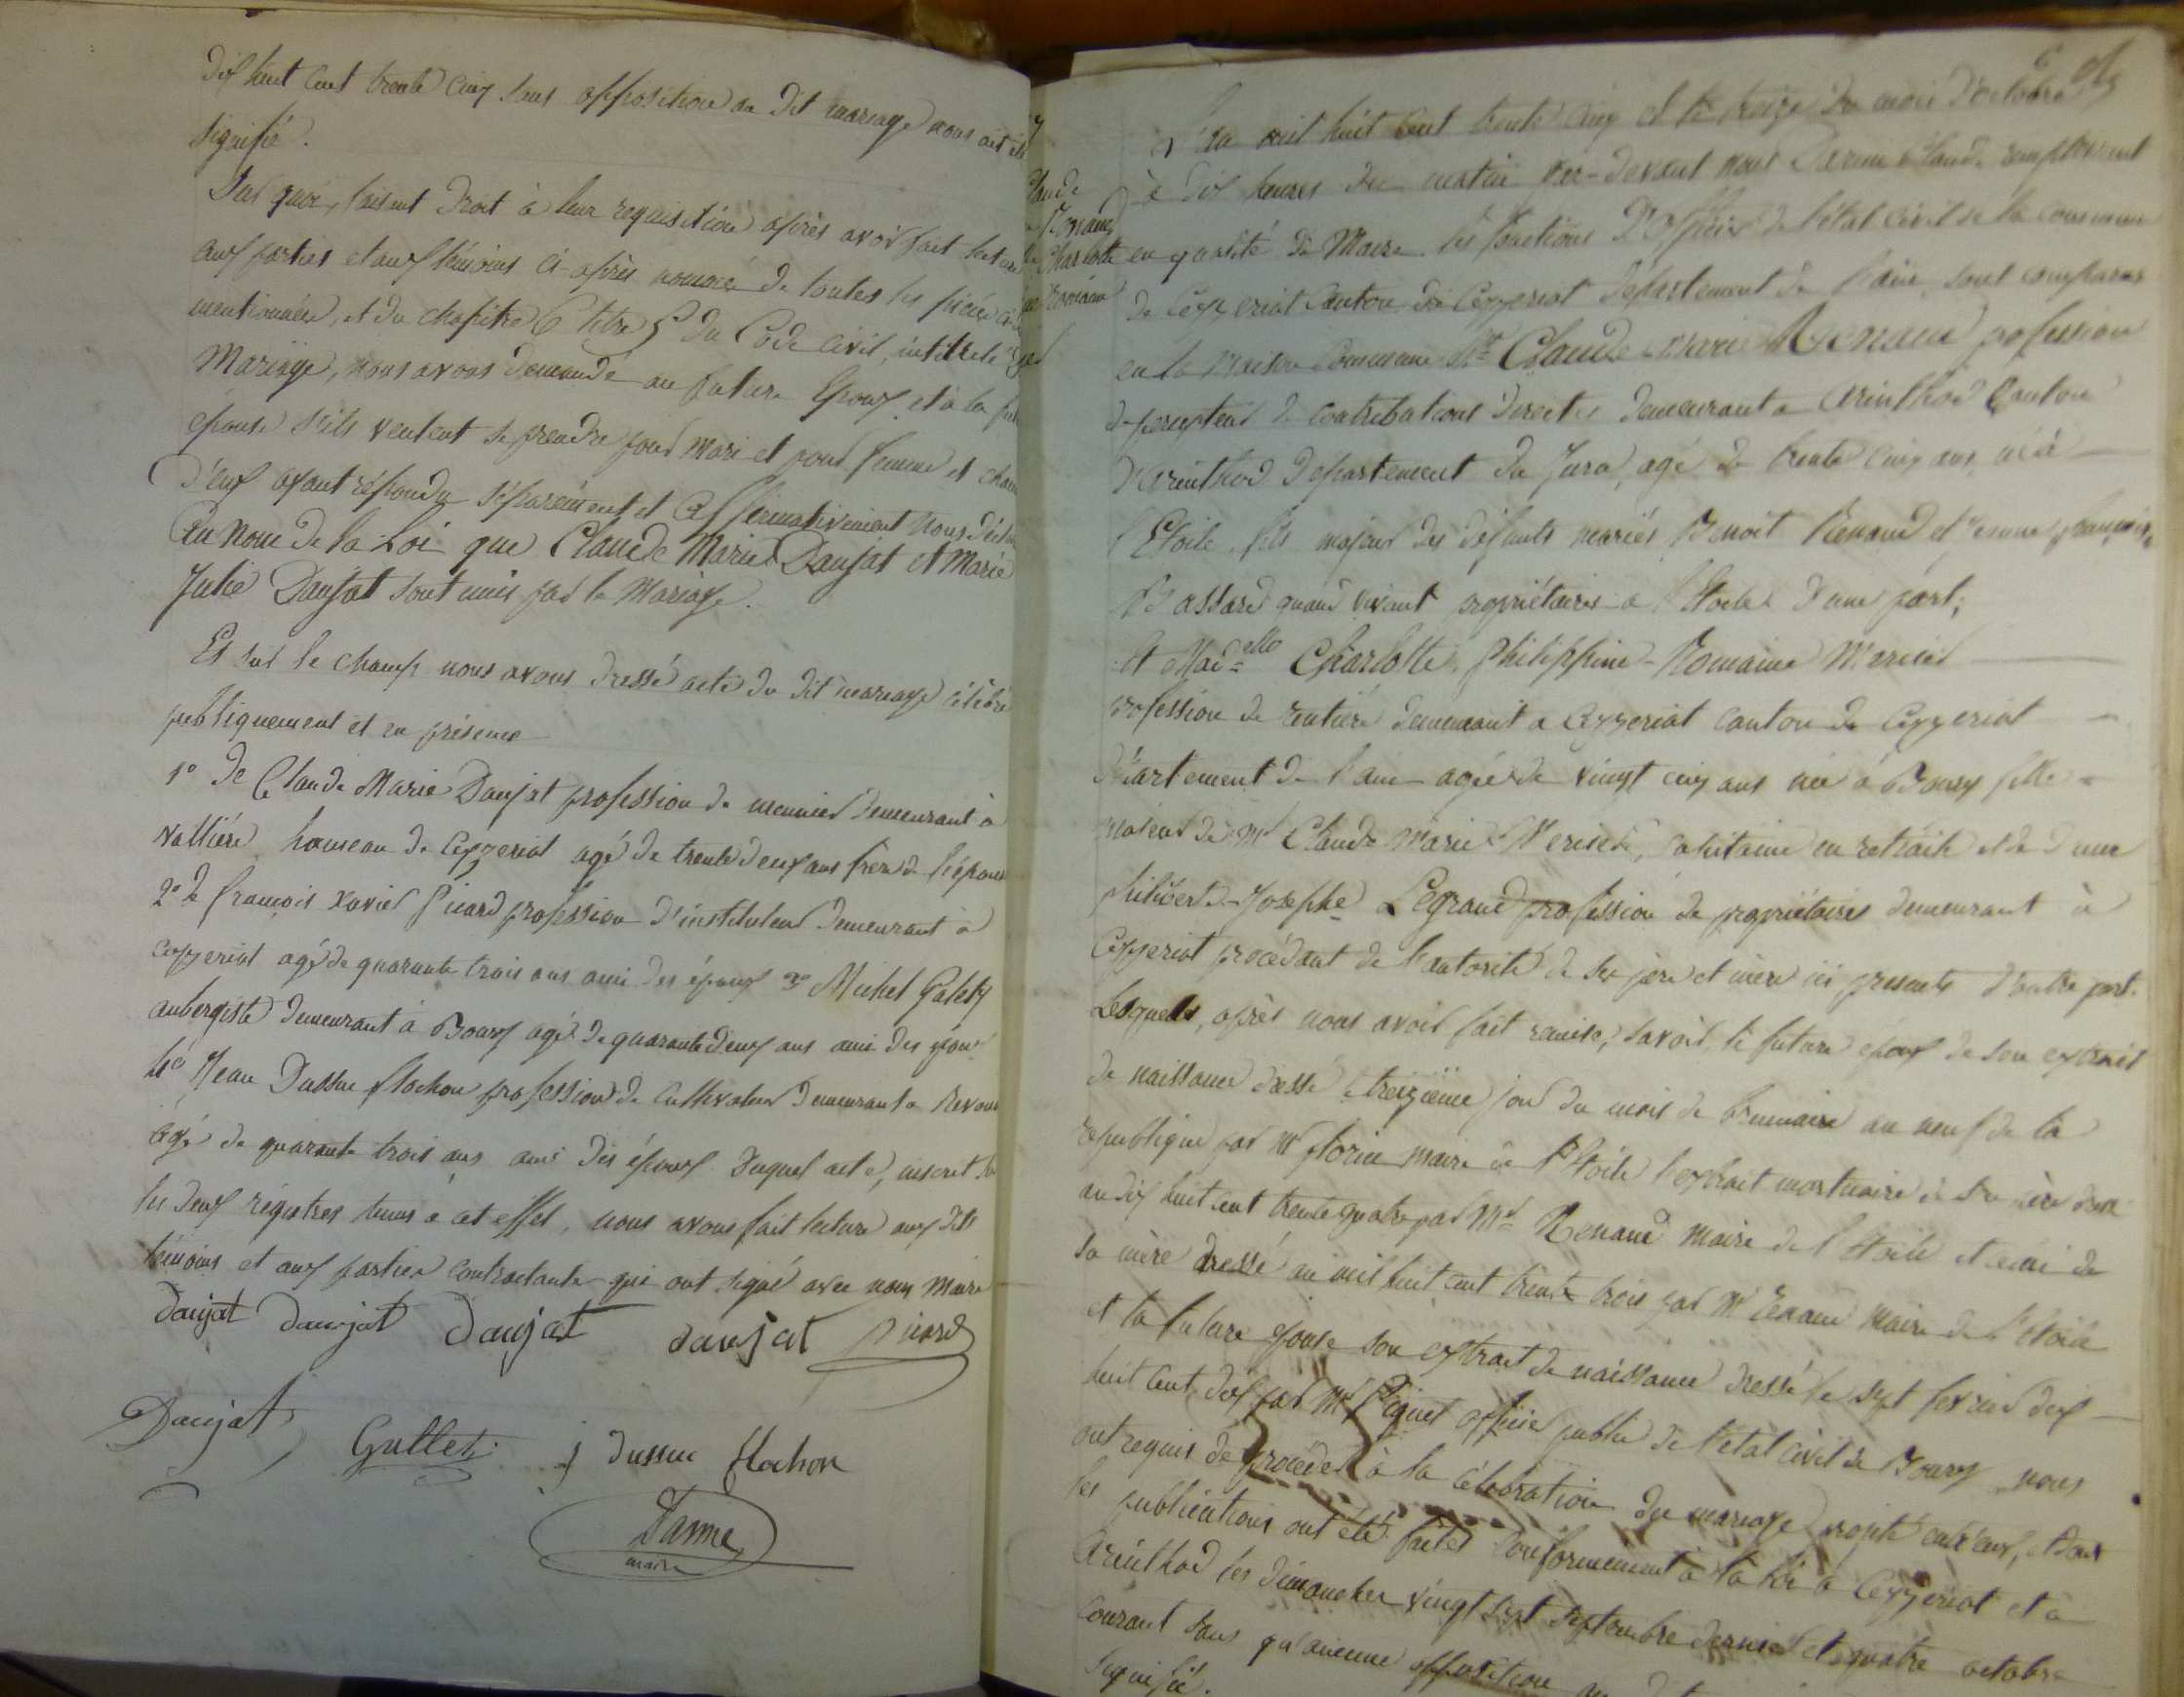 dix huit cent trente cinq sans opposition au dit mariage nous ait été
signifié.
Sur quoi, faisant droit à leur requisition après avoir fait lecture
aux parties et aux témoins ci-après nommés de toutes les pièces ci
mentionnées, et du chapitre 6 titre 5 du Code civil, intitulé
Mariage, nous avons demandé au future Epoux et à la
épouse s'ils veulent se prendre pour mari et pour femme et chacun
d'eux ayant répondu séparément et affirmativement nous
Au Nom de la Loi que Claude Marie Daujat et Marie
Julie Daujat sont unis par le Mariage.
Et sur le champ nous avons dressé acte du dit mariage célébré
publiquement et en présence
1º De Claude Marie Daujat profession de meunier demeurant à
Vallière hameau de Ceyzeriat agé de trente deux ans frère de l'épouse
2º De françois Xavier Picard profession d'instituteur demeurant à
Ceyzeriat agé de quarante trois ans ami des époux 3º Michel Galety
aubergiste demeurant à Bourg agé de quarante deux ans ami des époux
4º Jean Dussuc flochon profession de Cultivateur demeurant a
agé de quarante trois ans ami des époux Duquel acte, inscrit
les deux régistres tenus à cet effet, nous avons fait lecture aux dits
témoins et aux parties contractantes qui ont signé avec nous Maire
Daujat Daujat Daujat Daujat Picard
Daujat Gallet j dussuc flochon
Darme
maire
6
Claude
Renaud
Charlotte
Romaine
L'an mil huit cent trente cinq et le treize du mois d'octobre
à dix heures du matin Par-devant nous Darme Claude remplissant
en qualité de Maire les fonctions D'officier de l'état civil de la commune
de Ceyzeriat Canton de Ceyzeriat Département de l'ain, sont comparus
en la Maison Commune Mr Claude-marie Renaud profession
de percepteur de contributions directes demeurant a Arinthod Canton
d'Arinthod Département du Jura, agé de trente cinq ans, né à
l'Etoile, fils majeur des défunts mariés Benoit Renaud et Jeanne françoise
Bassard quand vivant propriétaires à l'Etoile d'une part;
Et Madelle Charlotte, Philippine-Romaine Mercier
profession de rentière demeurant a Ceyzeriat canton de Ceyzeriat
Département de l'ain agée de vingt cinq ans née à Bourg fille
majeur de Mr Claude Marie Mercier, Capitaine en retraite et de Dame
philiberte-Josephe Legrand profession de propriétaires demeurant à
Ceyzeriat procédant de l'autorité de ses père et mère ici presents d'autre part.
Lesquels, après nous avoir fait remise, savoir, le future époux de son extrait
de naissance dressé le treizieme jour du mois de brumaire an neuf de la
republique par Mr florin maire de l'Etoile l'extrait mortuaire de son père
an dix huit cent trente quatre par Mr Renaud Maire de l'Etoile et celui de
sa mère dressé an mil huit cent trente trois par Mr Renaud Maire de l'Etoile
et la future épouse son extrait de naissance dressé le sept fevrier dix
huit cent dix par Mr Piquet officier public de l'état civil de Bourg nous
ont requis de procéder à la célébration du mariage projeté entr'eux, et dont
les publications ont été faites conformément à la loi à Ceyzeriat et à
Arinthod les dimanches vingt sept septembre dernier et quatre octobre
courant sans qu'aucune opposition au dit
signifié.